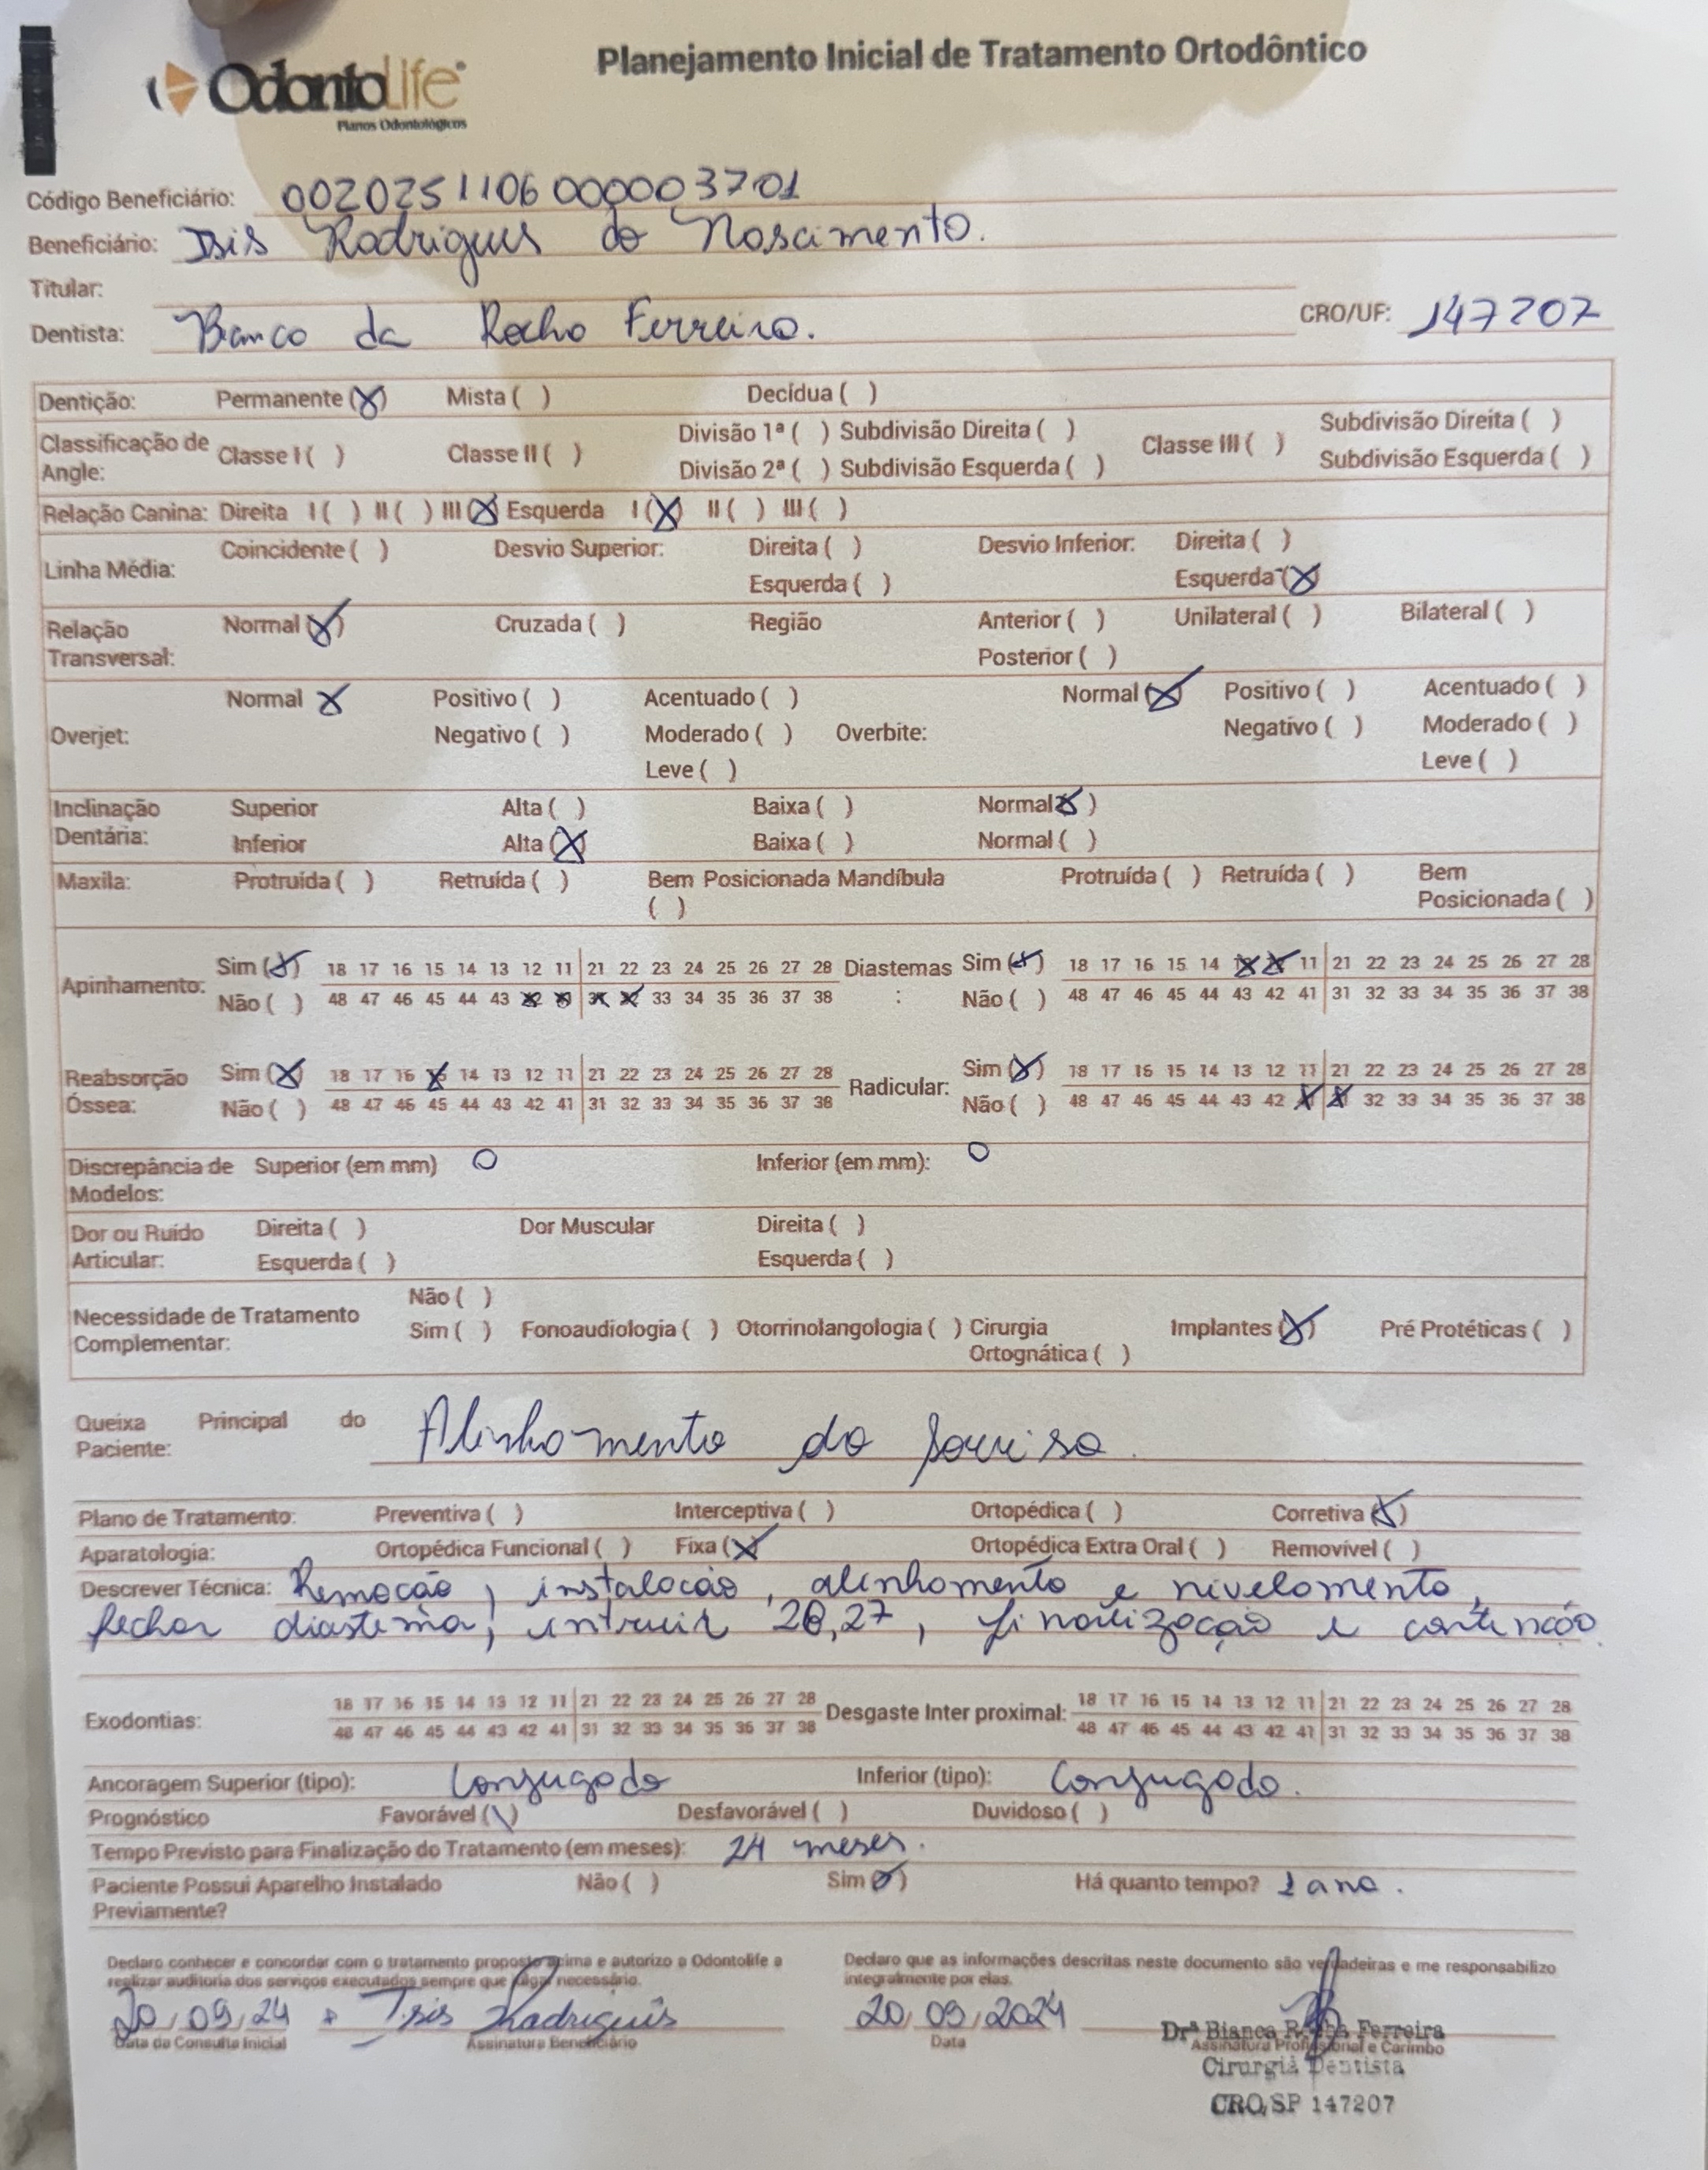 OdontoLife
Planos Odontológicos
Planejamento Inicial de Tratamento Ortodôntico
Código Beneficiário: 00202511060000003701
Beneficiário: Isis Rodrigues do Nascimento.
Titular:
Dentista: Bianca da Rocha Ferreira. CRO/UF: 147207
Dentição: Permanente (X) Mista ( ) Decídua ( )
Classificação de Angle: Classe I ( ) Classe II ( ) Divisão 1ª ( ) Subdivisão Direita ( ) Classe III ( ) Subdivisão Direita ( )
Divisão 2ª ( ) Subdivisão Esquerda ( ) Subdivisão Esquerda ( )
Relação Canina: Direita I ( ) II ( ) III (X) Esquerda I (X) II ( ) III ( )
Linha Média: Coincidente ( ) Desvio Superior: Direita ( ) Desvio Inferior: Direita ( )
Esquerda ( ) Esquerda (X)
Relação Transversal: Normal (X) Cruzada ( ) Região Anterior ( ) Unilateral ( ) Bilateral ( )
Posterior ( )
Overjet: Normal X Positivo ( ) Acentuado ( ) Overbite: Normal (X) Positivo ( ) Acentuado ( )
Negativo ( ) Moderado ( ) Negativo ( ) Moderado ( )
Leve ( ) Leve ( )
Inclinação Dentária: Superior Alta ( ) Baixa ( ) Normal (X)
Inferior Alta (X) Baixa ( ) Normal ( )
Maxila: Protruída ( ) Retruída ( ) Bem Posicionada ( ) Mandíbula Protruída ( ) Retruída ( ) Bem Posicionada ( )
Apinhamento: Sim (X) 18 17 16 15 14 13 12 11 21 22 23 24 25 26 27 28 Diastemas: Sim (X) 18 17 16 15 14 13 12 11 21 22 23 24 25 26 27 28
Não ( ) 48 47 46 45 44 43 42 41 31 32 33 34 35 36 37 38 Não ( ) 48 47 46 45 44 43 42 41 31 32 33 34 35 36 37 38
Reabsorção Óssea: Sim (X) 18 17 16 15 14 13 12 11 21 22 23 24 25 26 27 28 Radicular: Sim (X) 18 17 16 15 14 13 12 11 21 22 23 24 25 26 27 28
Não ( ) 48 47 46 45 44 43 42 41 31 32 33 34 35 36 37 38 Não ( ) 48 47 46 45 44 43 42 41 31 32 33 34 35 36 37 38
Discrepância de Modelos: Superior (em mm) 0 Inferior (em mm): 0
Dor ou Ruído Articular: Direita ( ) Dor Muscular Direita ( )
Esquerda ( ) Esquerda ( )
Necessidade de Tratamento Complementar: Não ( )
Sim ( ) Fonoaudiologia ( ) Otorrinolangologia ( ) Cirurgia Ortognática ( ) Implantes (X) Pré Protéticas ( )
Queixa Principal do Paciente: Alinhamento do sorriso.
Plano de Tratamento: Preventiva ( ) Interceptiva ( ) Ortopédica ( ) Corretiva (X)
Aparatologia: Ortopédica Funcional ( ) Fixa (X) Ortopédica Extra Oral ( ) Removível ( )
Descrever Técnica: Remoção, instalação, alinhamento e nivelamento,
fechar diastema, intruir 26,27, finalização e contenção
Exodontias: 18 17 16 15 14 13 12 11 21 22 23 24 25 26 27 28 Desgaste Inter proximal: 18 17 16 15 14 13 12 11 21 22 23 24 25 26 27 28
48 47 46 45 44 43 42 41 31 32 33 34 35 36 37 38 48 47 46 45 44 43 42 41 31 32 33 34 35 36 37 38
Ancoragem Superior (tipo): Conjugado Inferior (tipo): Conjugado.
Prognóstico Favorável (\) Desfavorável ( ) Duvidoso ( )
Tempo Previsto para Finalização do Tratamento (em meses): 24 meses.
Paciente Possui Aparelho Instalado Previamente? Não ( ) Sim (X) Há quanto tempo? 1 ano.
Declaro conhecer e concordar com o tratamento proposto acima e autorizo a Odontolife a
realizar auditoria dos serviços executados sempre que julgar necessário.
Declaro que as informações descritas neste documento são verdadeiras e me responsabilizo
integralmente por elas.
20/09/24 Isis Rodrigues 20/09/2024
Data da Consulta Inicial Assinatura Beneficiário Data Assinatura Profissional e Carimbo
Drª Bianca Rocha Ferreira
Cirurgiã Dentista
CRO/SP 147207